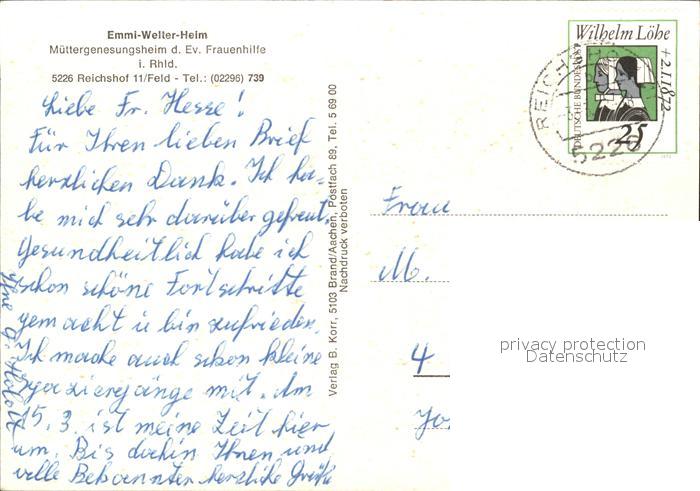 Emmi-Welter-Heim
Müttergenesungsheim d. Ev. Frauenhilfe
i. Rhld.
5226 Reichshof 11/Feld - Tel.: (02296) 739
Liebe Fr. Hesse!
Für Ihren lieben Brief
herzlichen Dank. Ich ha-
be mich sehr darüber gefreut.
Gesundheitlich habe ich
schon schöne Fortschritte
gemacht u bin zufrieden.
Ich mache auch schon kleine
Spaziergänge mit. Am
15.3. ist meine Zeit hier
um. Bis dahin Ihnen und
alle Bekannten herzliche Grüße
Ihre
Verlag B. Korr, 5103 Brand/Aachen, Postfach 89, Tel. 5 69 00
Nachdruck verboten
Wilhelm Löhe
+2.1.1872
DEUTSCHE BUNDESPOST
25
REICHSHOF
5226
Frau
M.
4
Jo
privacy protection
Datenschutz